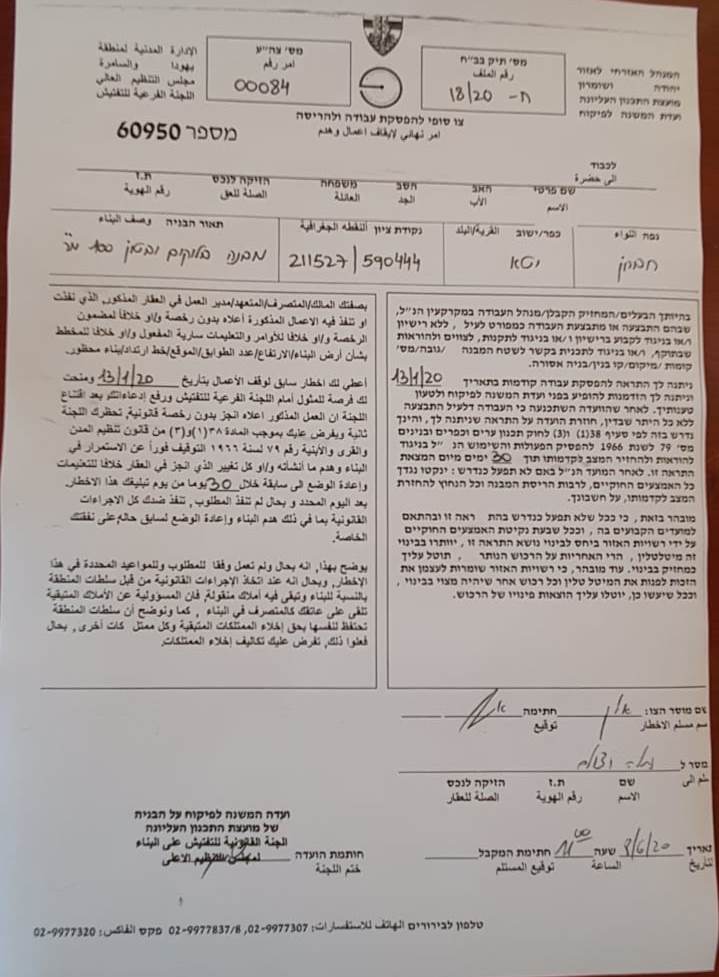 המנהל האזרחי לאזור
יהודה ושומרון
מועצת התכנון העליונה
ועדת המשנה לפיקוח
מס׳ תיק בב״ח
رقم الملف
ח- 18/20
מס׳ צה״ע
امر رقم
00084
الإدارة المدنية لمنطقة
يهودا والسامرة
مجلس التنظيم العالي
اللجنة الفرعية للتفتيش
צו סופי להפסקת עבודה ולהריסה
امر نهائي لإيقاف اعمال وهدم
מספר 60950
לכבוד
الى حضرة
שם פרטי האב הסב משפחה הזיקה לנכס ת.ז
الاسم الأب الجد العائلة الصلة للحق رقم الهوية
נפה اللواء כפר/ישוב القرية/البلد נקודת ציון النقطه الجغرافية תאור הבניה وصف البناء
חברון יטא 211527 | 590444 מבנה בלוקים ובטון 100 מ״ר
בהיותך הבעלים/המחזיק הקבלן/מנהל העבודה במקרקעין הנ״ל,
שבהם התבצעה או מתבצעת העבודה כמפורט לעיל, ללא רישיון
ו/או בניגוד לקבוע ברישיון ו/או בניגוד לתקנות, לצווים ולהוראות
שבתוקף, ו/או בניגוד לתכנית בקשר לשטח המבנה /גובה/מס׳
קומות /מיקום/קו בנין/בניה אסורה.
ניתנה לך התראה להפסקת עבודה קודמת בתאריך 13/1/20
וניתנה לך הזדמנות להופיע בפני ועדת המשנה לפיקוח ולטעון
טענותיך. לאחר שהוועדה השתכנעה כי העבודה דלעיל התבצעה
ללא כל היתר שבדין, חוזרת הועדה על התראה שניתנה לך, והינך
נדרש בזה לפי סעיף 38(1) ו(3) לחוק תכנון ערים וכפרים ובנינים
מס׳ 79 לשנת 1966 להפסיק הפעולות והשימוש הנ״ל בניגוד
להוראות ולהחזיר המצב לקדמותו תוך 30 ימים מיום המצאת
התראה זו. לאחר המועד הנ״ל באם לא תפעל כנדרש: ינקטו נגדך
כל האמצעים החוקיים, לרבות הריסת המבנה וכל הנחוץ להחזרת
המצב לקדמותו, על חשבונך.
מובהר בזאת, כי ככל שלא תפעל כנדרש בהתראה זו ובהתאם
למועדים הקבועים בה, וככל שבעת נקיטת האמצעים החוקיים
על ידי רשויות האזור ביחס לבינוי נושא התראה זו, יוותרו בבינוי
זה מיטלטלין, הרי האחריות על הרכוש הנותר, תוטל עליך
כמחזיק בבינוי. עוד מובהר, כי רשויות האזור שומרות לעצמן את
הזכות לפנות את המיטלטלין וכל רכוש אחר שיהיה מצוי בבינוי,
וככל שיעשו כן, יוטלו עליך הוצאות פינויו של הרכוש.
بصفتك المالك/المتصرف/المتعهد/مدير العمل في العقار المذكور, الذي نفذت
او تنفذ فيه الاعمال المذكورة أعلاه بدون رخصة و/او خلافا لمضمون
الرخصة و/او خلافا للأوامر والتعليمات سارية المفعول و/او خلافا للمخطط
بشأن أرض البناء/الارتفاع/عدد الطوابق/الموقع/خط ارتداد/بناء محظور.
أعطي لك اخطار سابق لوقف الأعمال بتأريخ 13/1/20 ومنحت
لك فرصة للمثول أمام اللجنة الفرعية للتفتيش ورفع إدعاءاتك. بعد اقتناع
اللجنة ان العمل المذكور اعلاه انجز بدون رخصة قانونية, تحظرك اللجنة
ثانية ويفرض عليك بموجب المادة ٣٨(١) و(٣) من قانون تنظيم المدن
والقرى والأبنية رقم ٧٩ لسنة ١٩٦٦ التوقيف فوراً عن الاستمرار في
البناء وهدم ما أنشأته و/او كل تغيير الذي انجز في العقار خلافا للتعليمات
وإعادة الوضع الى سابقة خلال 30 يوما من يوم تبليغك هذا الاخطار.
بعد اليوم المحدد و بحال لم تنفذ المطلوب, تنفذ ضدك كل الاجراءات
القانونية بما في ذلك هدم البناء وإعادة الوضع لسابق حاله, على نفقتك
الخاصة.
يوضح بهذا, انه بحال ولم تعمل وفقا للمطلوب وللمواعيد المحددة في هذا
الإخطار, وبحال انه عند اتخاذ الإجراءات القانونية من قبل سلطات المنطقة
بالنسبة للبناء وتبقى فيه أملاك منقولة, فان المسؤولية عن الأملاك المتبقية
تلقى على عاتقك كالمتصرف في البناء, كما ونوضح أن سلطات المنطقة
تحتفظ لنفسها بحق إخلاء الممتلكات المتبقية وكل ممتلكات أخرى, بحال
فعلوا ذلك, تفرض عليك تكاليف إخلاء الممتلكات.
שם מוסר הצו: חתימה
اسم مسلم الاخطار توقيع
נמסר ל
سلم الى
שם ת.ז הזיקה לנכס
الاسم رقم الهوية الصلة للعقار
תאריך 3/6/20 שעה 11:00 חתימת המקבל
تاريخ الساعة توقيع المستلم
ועדה המשנה לפיקוח על הבניה
של מועצת התכנון העליונה
اللجنة القانونية للتفتيش على البناء
لمجلس التنظيم الاعلى
חותמת הועדה
ختم اللجنة
טלפון לבירורים الهاتف للاستفسارات: 02-9977307, 02-9977837/8 פקס الفاكس: 02-9977320